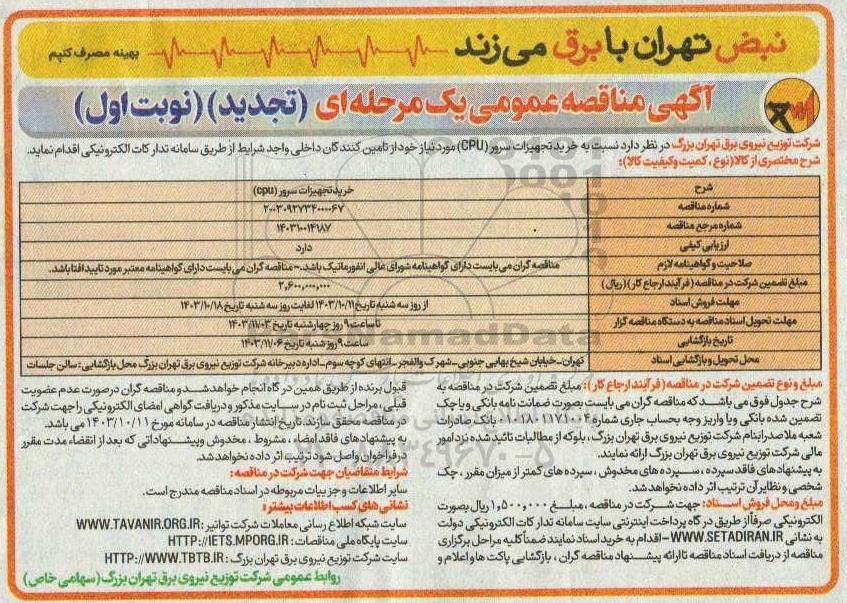 نبض تهران با برق می زند
بهینه مصرف کنیم
آگهی مناقصه عمومی یک مرحله ای (تجدید) (نوبت اول)
شرکت توزیع نیروی برق تهران بزرگ در نظر دارد نسبت به خرید تجهیزات سرور (CPU) مورد نیاز خود از تامین کنندگان داخلی واجد شرایط از طریق سامانه تدارکات الکترونیکی اقدام نماید.
شرح مختصری از کالا (نوع ، کمیت وکیفیت کالا):
شرح خرید تجهیزات سرور (cpu)
شماره مناقصه ۲۰۰۳۰۹۲۷۳۴۰۰۰۰۶۷
شماره مرجع مناقصه ۱۴۰۳۱۰۰۱۴۱۸۷
ارزیابی کیفی دارد
صلاحیت و گواهینامه لازم مناقصه گران می بایست دارای گواهینامه شورای عالی انفورماتیک باشد.- مناقصه گران می بایست دارای گواهینامه معتبر مورد تایید افتا باشد.
مبلغ تضمین شرکت در مناقصه ( فرآیند ارجاع کار ) (ریال) ۲,۶۰۰,۰۰۰,۰۰۰
مهلت فروش اسناد از روز سه شنبه تاریخ ۱۴۰۳/۱۰/۱۱ لغایت روز سه شنبه تاریخ ۱۴۰۳/۱۰/۱۸
مهلت تحویل اسناد مناقصه به دستگاه مناقصه گزار تا ساعت ۹ روز چهارشنبه تاریخ ۱۴۰۳/۱۱/۰۳
تاریخ بازگشایی ساعت ۹ روز شنبه تاریخ ۱۴۰۳/۱۱/۰۶
محل تحویل و بازگشایی اسناد تهران-خیابان شیخ بهایی جنوبی-شهرک والفجر-انتهای کوچه سوم-اداره دبیرخانه شرکت توزیع نیروی برق تهران بزرگ محل بازگشایی: سالن جلسات
مبلغ و نوع تضمین شرکت در مناقصه ( فرآیند ارجاع کار ): مبلغ تضمین شرکت در مناقصه به
شرح جدول فوق می باشد که مناقصه گران می بایست بصورت ضمانت نامه بانکی و یا چک
تضمین شده بانکی و یا واریز وجه بحساب جاری شماره بانک صادرات
شعبه ملاصدرا بنام شرکت توزیع نیروی برق تهران بزرگ ، بلوکه از مطالبات تائید شده نزد امور
مالی شرکت توزیع نیروی برق تهران بزرگ ارائه نمایند.
به پیشنهادهای فاقد سپرده ، سپرده های مخدوش ، سپرده های کمتر از میزان مقرر ، چک
شخصی و نظایر آن ترتیب اثر داده نخواهد شد.
مبلغ و محل فروش اسناد: جهت شرکت در مناقصه ، مبلغ ۱,۵۰۰,۰۰۰ ریال بصورت
الکترونیکی صرفاً از طریق درگاه پرداخت اینترنتی سایت سامانه تدارکات الکترونیکی دولت
به نشانی WWW.SETADIRAN.IR - اقدام به خرید اسناد نمایند ضمناً کلیه مراحل برگزاری
مناقصه از دریافت اسناد مناقصه تا ارائه پیشنهاد مناقصه گران ، بازگشایی پاکت ها و اعلام و
قبول برنده از طریق همین درگاه انجام خواهد شد و مناقصه گران در صورت عدم عضویت
قبلی ، مراحل ثبت نام در سایت مذکور و دریافت گواهی امضای الکترونیکی را جهت شرکت
در مناقصه محقق سازند. تاریخ انتشار مناقصه در سامانه مورخ ۱۴۰۳/۱۰/۱۱ می باشد.
به پیشنهادهای فاقد امضاء ، مشروط ، مخدوش و پیشنهاداتی که بعد از انقضاء مدت مقرر
در فراخوان واصل شود ترتیب اثر داده نخواهد شد.
شرایط متقاضیان جهت شرکت در مناقصه :
سایر اطلاعات و جزییات مربوطه در اسناد مناقصه مندرج است.
نشانی های کسب اطلاعات بیشتر :
سایت شبکه اطلاع رسانی معاملات شرکت توانیر : WWW.TAVANIR.ORG.IR
سایت پایگاه ملی مناقصات : HTTP://IETS.MPORG.IR
سایت شرکت توزیع نیروی برق تهران بزرگ : HTTP://WWW.TBTB.IR
روابط عمومی شرکت توزیع نیروی برق تهران بزرگ (سهامی خاص)